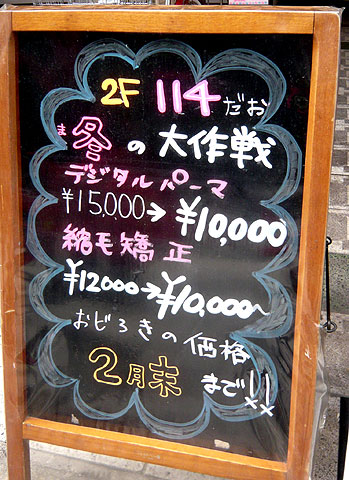 2F 114だお
ま冬の大作戦
デジタルパーマ
¥15,000→¥10,000
縮毛矯正
¥12000→¥10,000〜
おどろきの価格
2月末まで!!